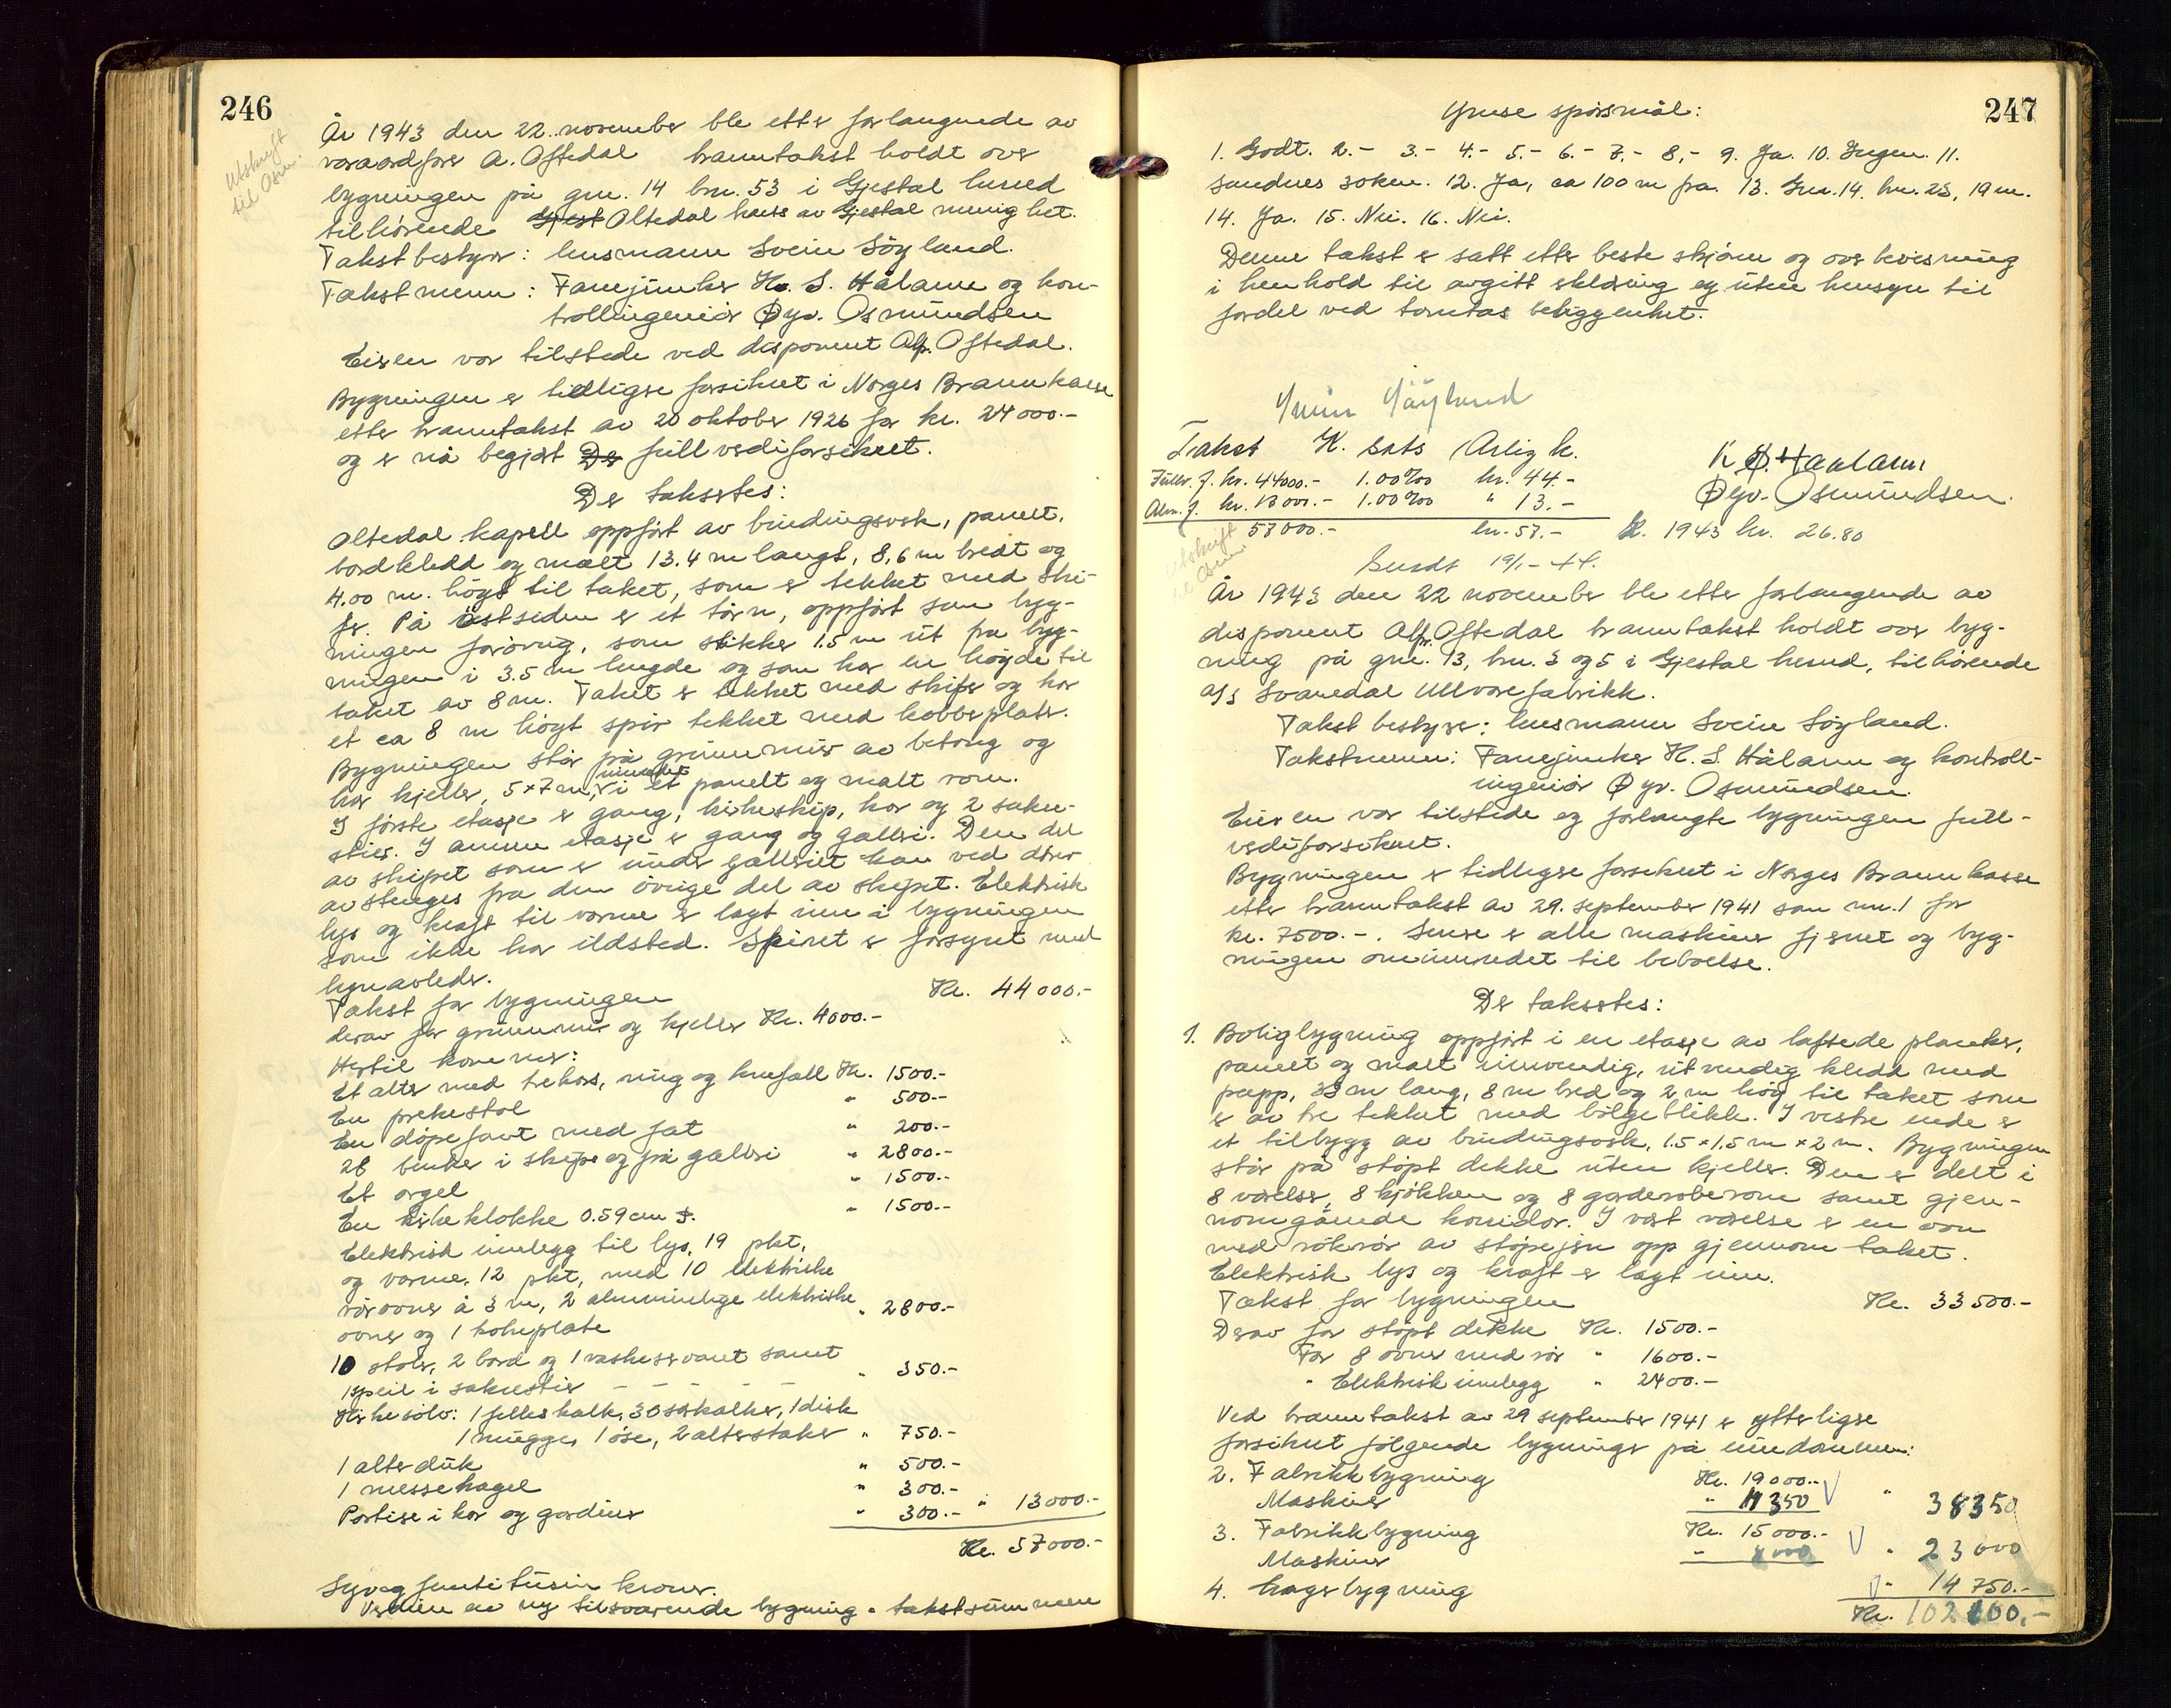 246
Utskrift
til Osm.
År 1943 den 22. november ble etter forlangende av
varaordfører A. Oftedal branntakst holdt over
bygningen på gnr. 14 bnr. 53 i Gjestal herred
tilhørende Gjest Oltedal krets av Gjestal menighet.
Takstbestyrer: lensmann Svein Söyland.
Takstmenn: Fanejunker K. S. Hålann og kon-
trollingeniör Øyv. Osmundsen
Eieren var tilstede ved disponent Alfr. Oftedal.
Bygningen er tidligere forsikret i Norges Brannkasse
etter branntakst av 20 oktober 1926 for kr. 24000.-
og er nå begjært De fullverdiforsikret.
De takseertes:
Oltedal kapell oppfört av bindingsverk, panelt,
bordkledd og malt 13.4 m langt, 8,6 m bredt og
4.00 m. högt til taket, som er tekket med ski-
fer. På östsiden er et tårn, oppfört som byg-
ningen forövrig, som stikker 1.5 m ut fra byg-
ningen i 3.5 m lengde og som har en höyde til
taket av 8 m. Taket er tekket med skifer og har
et ca 8 m högt spir tekket med kobberplater.
Bygningen står på grunnmur av betong og
har kjeller, 5×7 m, innredet i et panelt og malt rom.
I förste etasje er gang, kirkeskip, kor og 2 sakri-
stier. I annen etasje er gang og galleri. Den del
av skipet som er under galleriet kan ved dører
avstenges fra den övrige del av skipet. Elektrisk
lys og kraft til varme er lagt inn i bygningen
som ikke har ildsted. Spiret er forsynt med
lynavleder.
Takst for bygningen Kr. 44000.-
derav for grunnmur og kjeller Kr. 4000.-
Hertil kommer:
Et alter med trekors, ring og knefall Kr. 1500.-
En prekestol " 500.-
En döpefont med fat " 200.-
28 benker i skipe og på galleri " 2800.-
Et orgel " 1500.-
En kirkeklokke 0.59 cm " 1500.-
Elektrisk innlegg til lys, 19 pkt,
og varme, 12 pkt, med 10 elektriske
rörovner à 3 m, 2 alminnelige elektriske
ovner og 1 kokeplate " 2800.-
10 stoler, 2 bord og 1 vaskeservant samt
1 speil i sakristier - - - - - " 350.-
Kirkesölv: 1 felleskalk, 30 særkalker, 1 disk
1 mugge, 1 öse, 2 alterstaker " 750.-
1 alterduk " 500.-
1 messehagel " 300.-
Portiere i kor og gardiner " 300.- " 13000.-
Kr. 57000.-
Syvogfemti tusin kroner.
Verdien av ny tilsvarende bygning = takstsummen
247
Ymse spörsmål:
1. Godt. 2.- 3.- 4.- 5.- 6.- 7.- 8.- 9. Ja. 10. Ingen. 11.
Sandnes sokn. 12. Ja, ca 100 m fra. 13. Gnr. 14. bnr. 23, 19 m.
14. Ja. 15. Nei. 16. Nei.
Denne takst er satt etter beste skjönn og overbevisning
i henhold til avgitt erklæring og uten hensyn til
fordel ved tomtas beliggenhet.
Svein Söyland
Takst K. sats Årlig k.
Fullv. f. kr. 44000.- 1.00‰ kr. 44.-
Alm. f. kr. 13000.- 1.00‰ " 13.-
57000.- kr. 57.- K. 1943 kr. 26.80
K S. Haalann
Øyv. Osmundsen.
Sendt 19/1-44.
Utskrift
til Osm.
År 1943 den 22 november ble etter forlangende av
disponent Alfr. Oftedal branntakst holdt over byg-
ning på gnr. 13, bnr. 3 og 5 i Gjestal herred, tilhörende
A/S Svanedal Ullvarefabrikk.
Takstbestyrer: lensmann Svein Söyland.
Takstmenn: Fanejunker K. S. Hålann og kontroll-
ingeniör Øyv. Osmundsen.
Eieren var tilstede og forlangte bygningen full-
verdiforsikret.
Bygningen er tidligere forsikret i Norges Brannkasse
etter branntakst av 29. september 1941 som nr. 1 for
kr. 7500.-. Senere er alle maskiner fjernet og byg-
ningen ominnredet til beboelse.
De takseertes:
1. Boligbygning oppfört i en etasje av laftede planker,
panelt og malt innvendig, utvendig kledd med
papp, 33 m lang, 8 m bred og 2 m höy til taket som
er av tre tekket med bölgeblikk. I vestre ende er
et tilbygg av bindingsverk, 1.5×1.5 m × 2 m. Bygningen
står på stöpt dekke uten kjeller. Den er delt i
8 værelser, 8 kjökken og 8 garderoberom samt gjen-
nomgående korridor. I vært værelse er en ovn
med rökrör av stöpejern opp gjennom taket.
Elektrisk lys og kraft er lagt inn.
Takst for bygningen Kr. 33500.-
Derav for stöpt dekke Kr. 1500.-
For 8 ovner med rör " 1600.-
" Elektrisk innlegg " 2400.-
Ved branntakst av 29 september 1941 er ytterligere
forsikret fölgende bygninger på eiendommen:
2. Fabrikkbygning Kr. 19000.-
Maskiner " 19350 " 38350
3. Fabrikkbygning Kr. 15000.-
Maskiner " 8000 " 23000
4. Lagerbygning " 14750.-
Kr. 102600.-